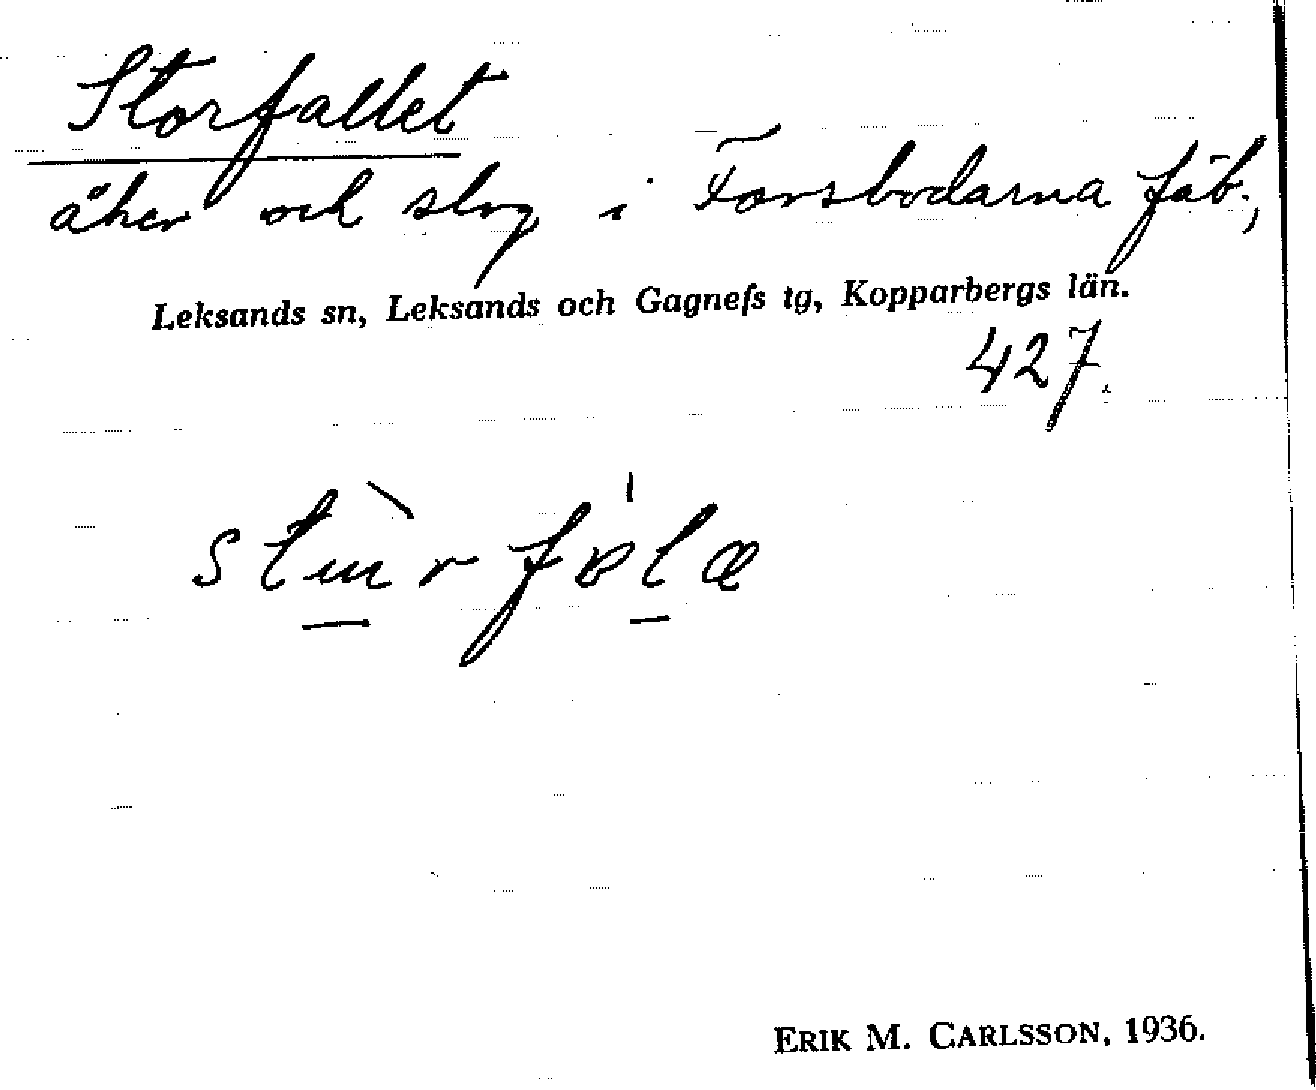 Storfallet
åker och slog i Forsbodarna fäb.,
Leksands sn, Leksands och Gagnefs tg, Kopparbergs län.
427.
ERIK M. CARLSSON, 1936.